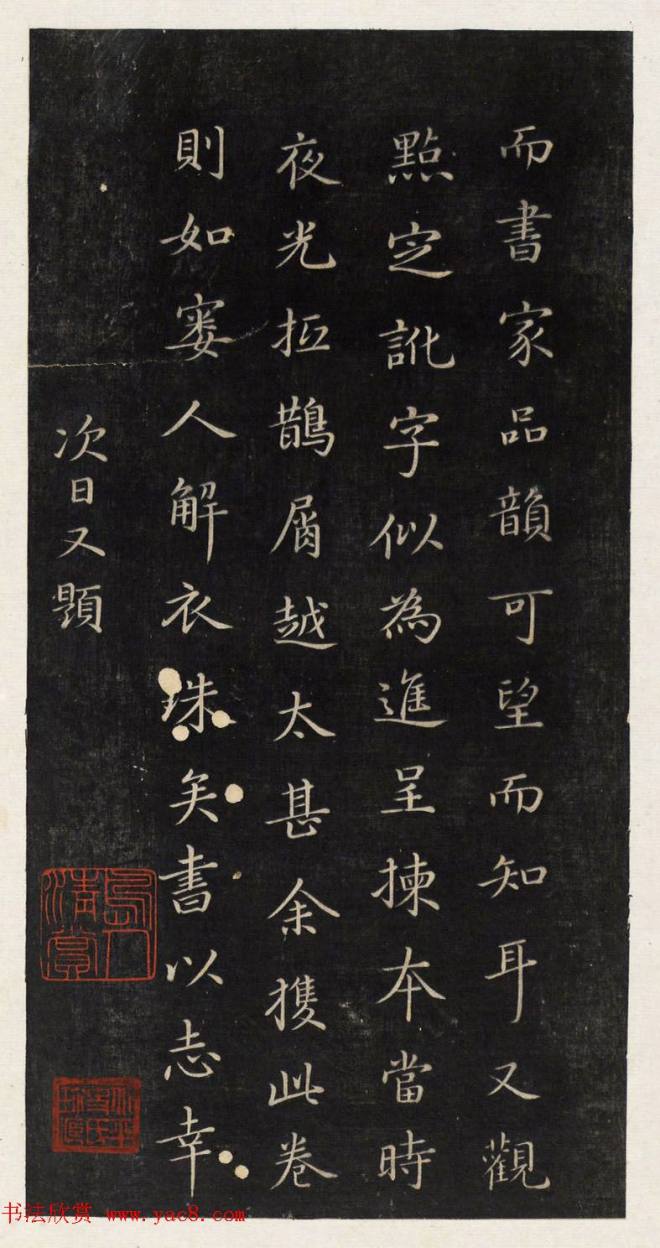 而書家品韻可望而知耳又觀
點定訛字似為進呈揀本當時
夜光抵鵲屑越太甚余獲此卷
則如窶人解衣珠矣書以志幸
次日又題
书法欣赏 www.yac8.com